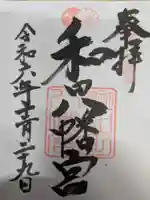 奉拝
和田八幡宮
令和六年十一月二十九日